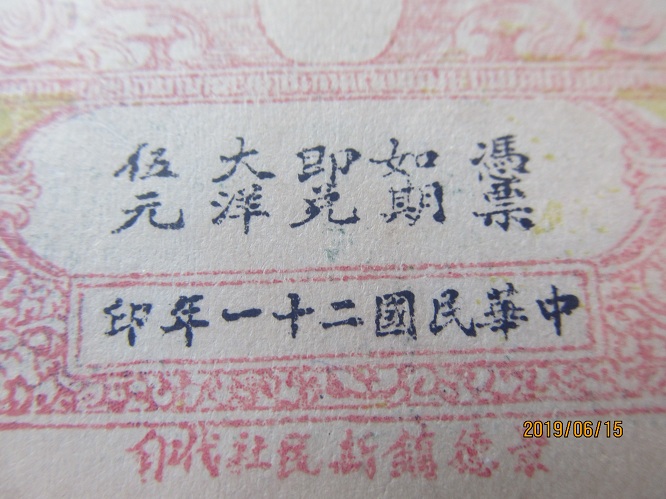 憑票
如期
即兑
大洋
伍元
中華民國二十一年印
景德鎮新民社代印
2019/06/15